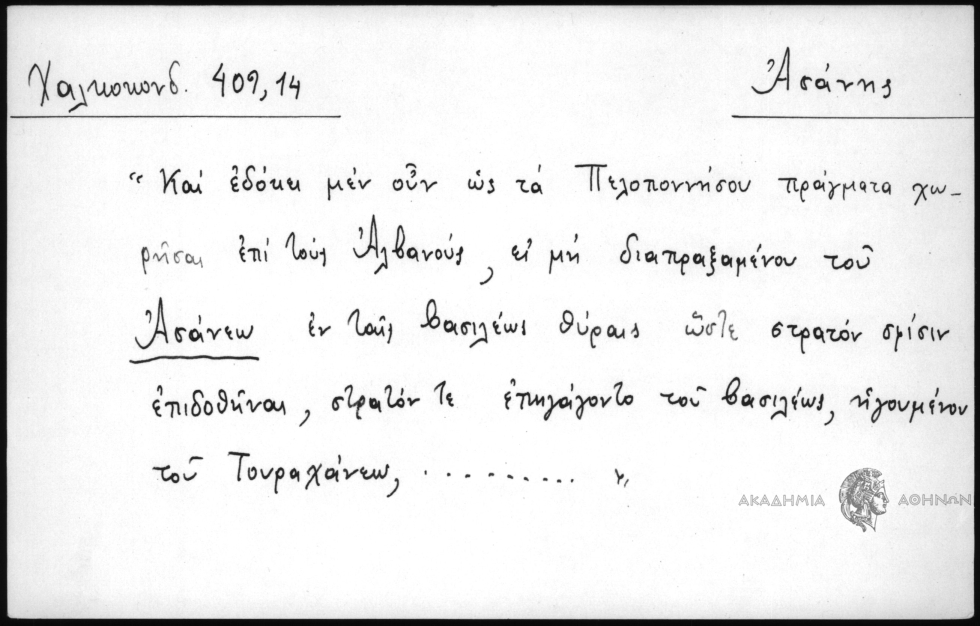 Χαλκοκονδ. 409,14
Ἀσάνης
“Καί ἐδόκει μέν οὖν ὡς τά Πελοποννήσου πράγματα χω-
ρῆσαι ἐπί τούς Ἀλβανούς, εἰ μή διαπραξαμένου τοῦ
Ἀσάνεω ἐν ταῖς βασιλέως θύραις ὥστε στρατόν σφίσιν
ἐπιδοθῆναι, στρατόν τε ἐπηγάγοντο τοῦ βασιλέως, ἡγουμένου
τοῦ Τουραχάνεω, .......... ”
ΑΚΑΔΗΜΙΑ ΑΘΗΝΩΝ